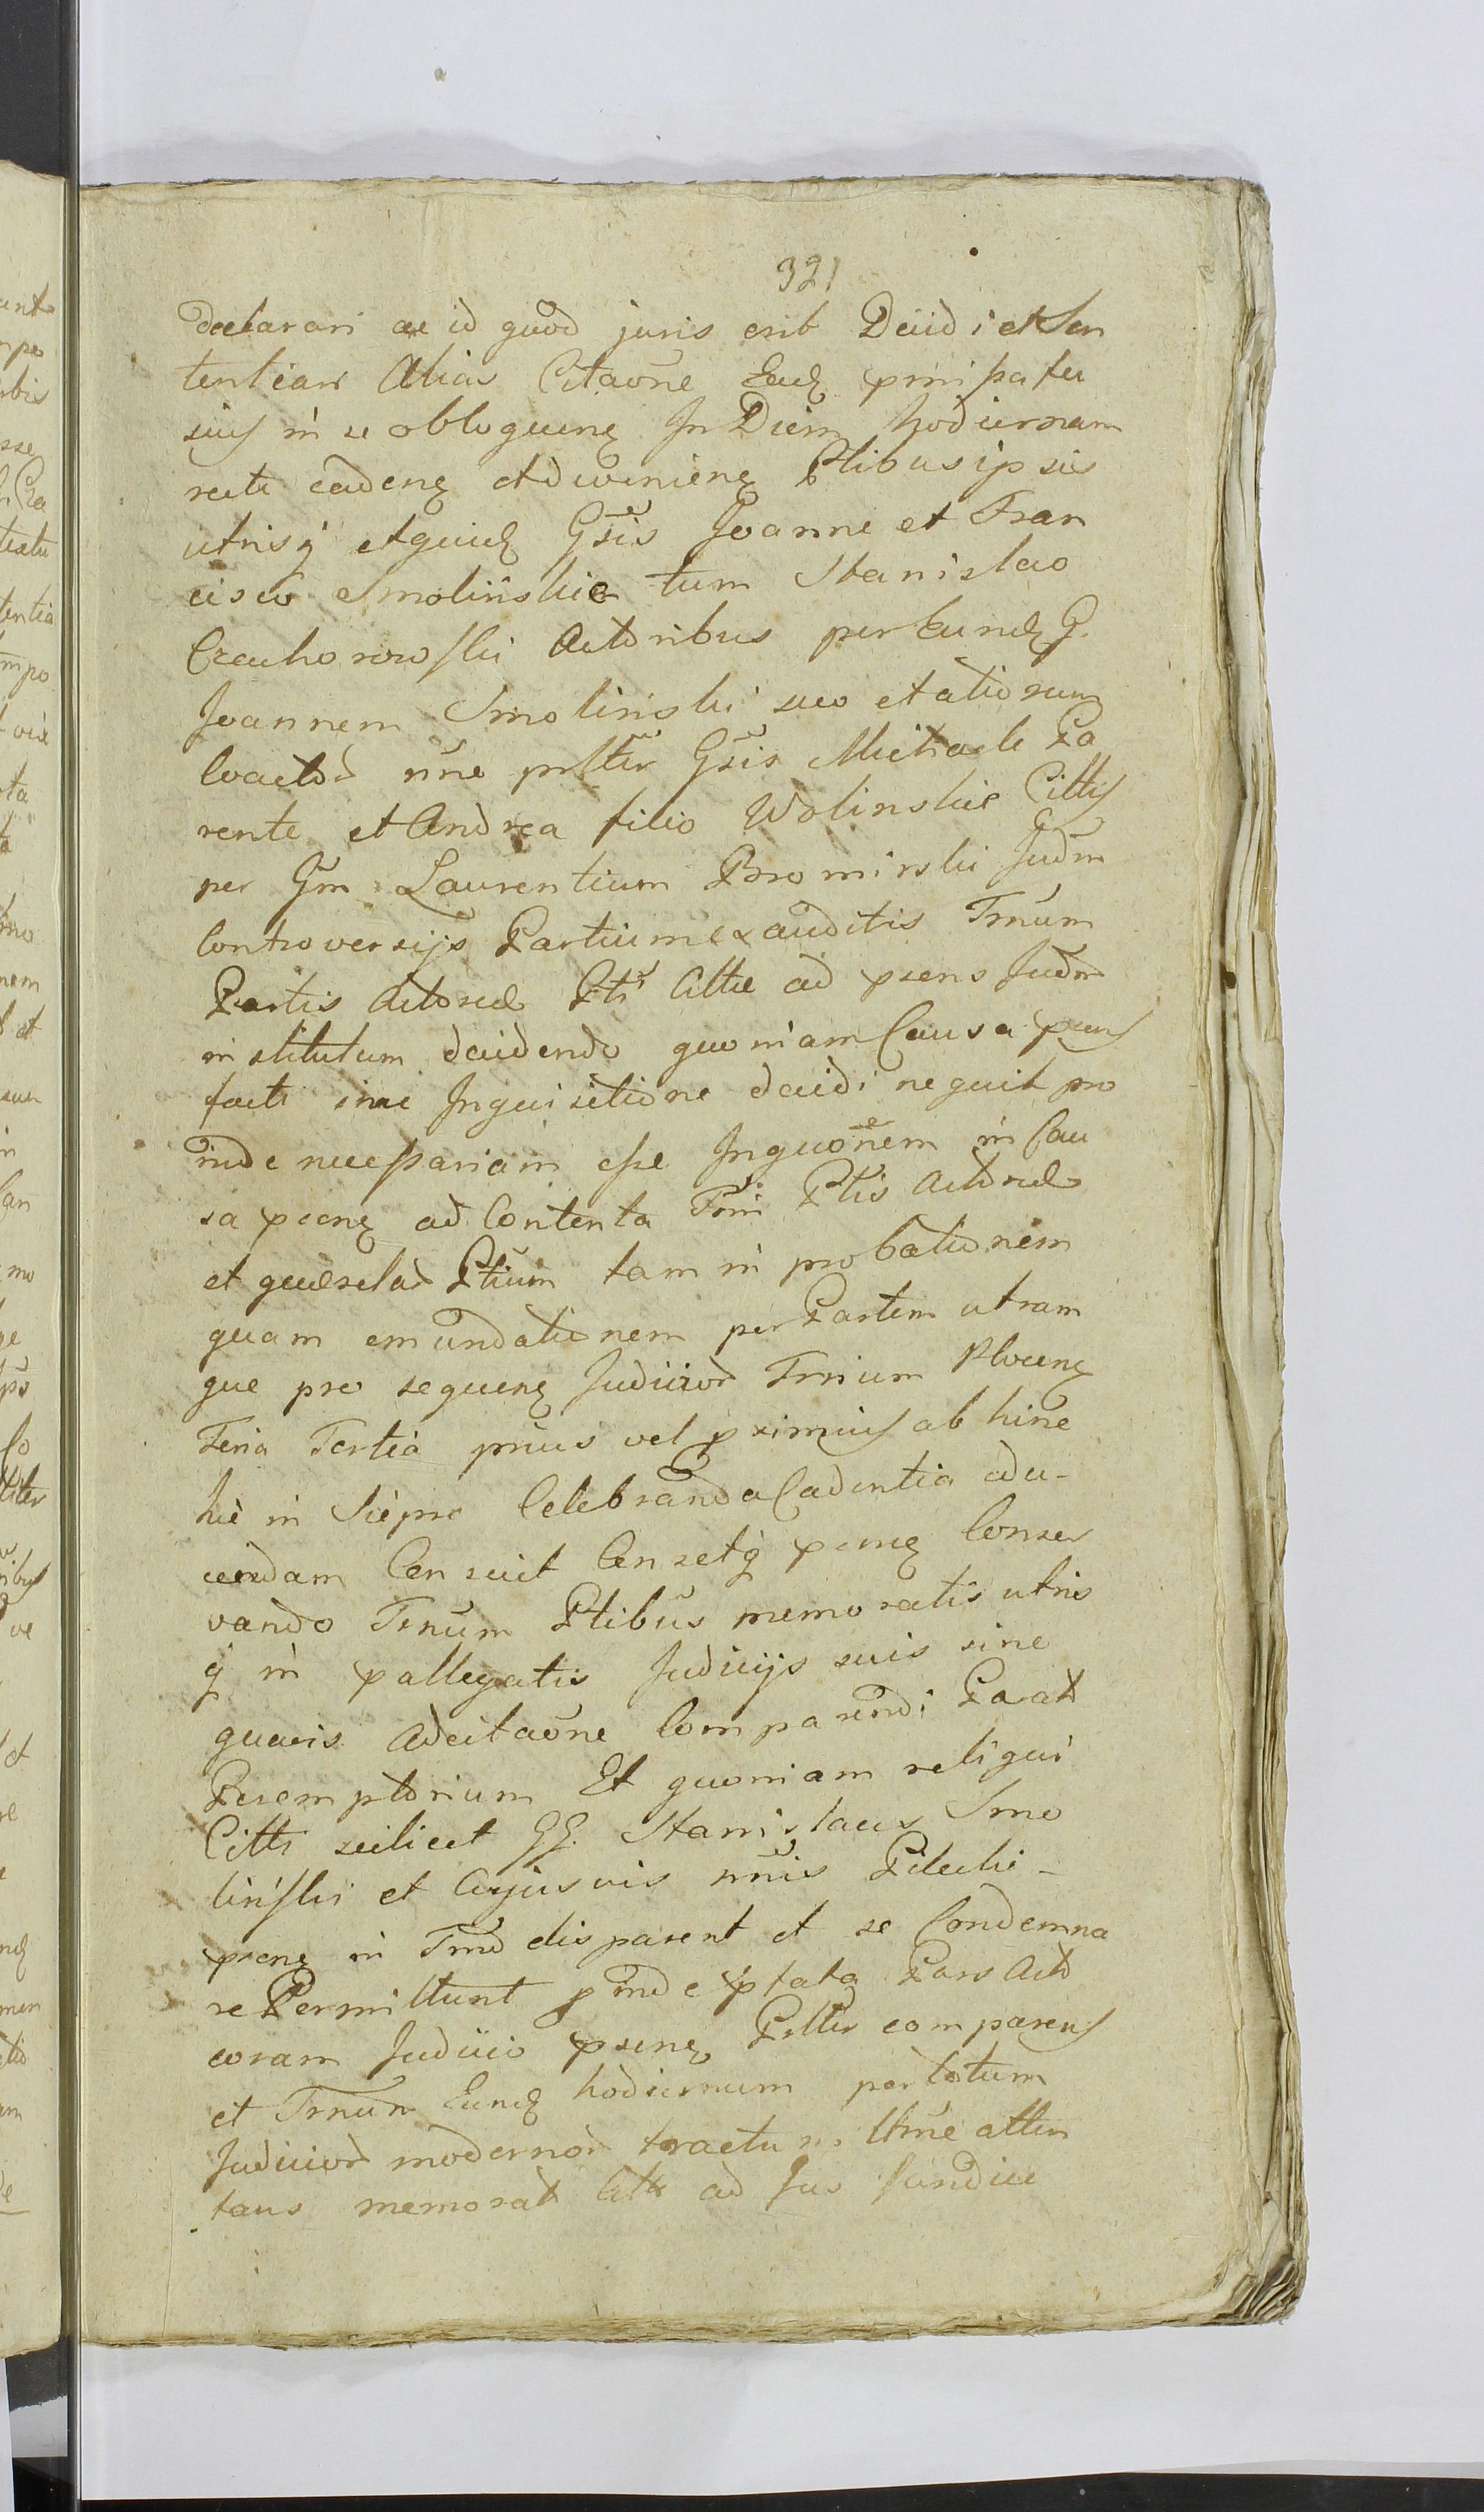 321
declarari ac id quod juris erit Decidi et Sen
tentiari Alias Citaõne Ead pmissa fu
sius in se obloquenę In Diem hodiernam
recte cadenę Adveniene Ptibus ipsis
utrisq̃ et quid Gsis Joanne et Fran
cisco Smolinskie tum Stanislao
Czachorowski Actoribus per Eund G.
Joannem Smolinski suo et aliorum
Coactor nñe psltr Gsis Michaele Pa
rente et Andrea filio Wolinskie Cittis
per Gm Laurentium Bromirski Judm
Controversijs Partium exauditis Trnum
Partis Actoreæ Pti Cittæ ad psens Judm
institutum decidendo quoniam Causa psens
facti sine Inquisitione decidi nequit pro
inde necessariam esse Inquonem in Cau
sa psenę ad Contenta Trni Ptis Actoreæ
et querelar Ptium tam in probationem
quam emundationem per Partem utram
que pro sequenę Judicior Trnium Plocenę
Feria Tertia prius vel pximius ab hinc
hic in Sierpc Celebranda Cadentia adu-
cendam Censuit Censetq̃ psenę Conser
vando Trnum Ptibus memoratis utris
q̃ in pallegatis Judicijs suis sine
quavis Adcitaõne Comparendi Parat
Peremptorium Et quoniam reliqui
Citti scilicet GG. Stanislaus Smo
linski et Cujusvis nñis Pilecki-
psenę in Trno disparent et se Condemna
re Permittunt pinde pfata Pars Act
coram Judicio psenę Psltr comparens
et Trnum Eund hodiernum per totum
Judicior modernor tractum ltme atten
tans memorat Citt ad Jus fundice